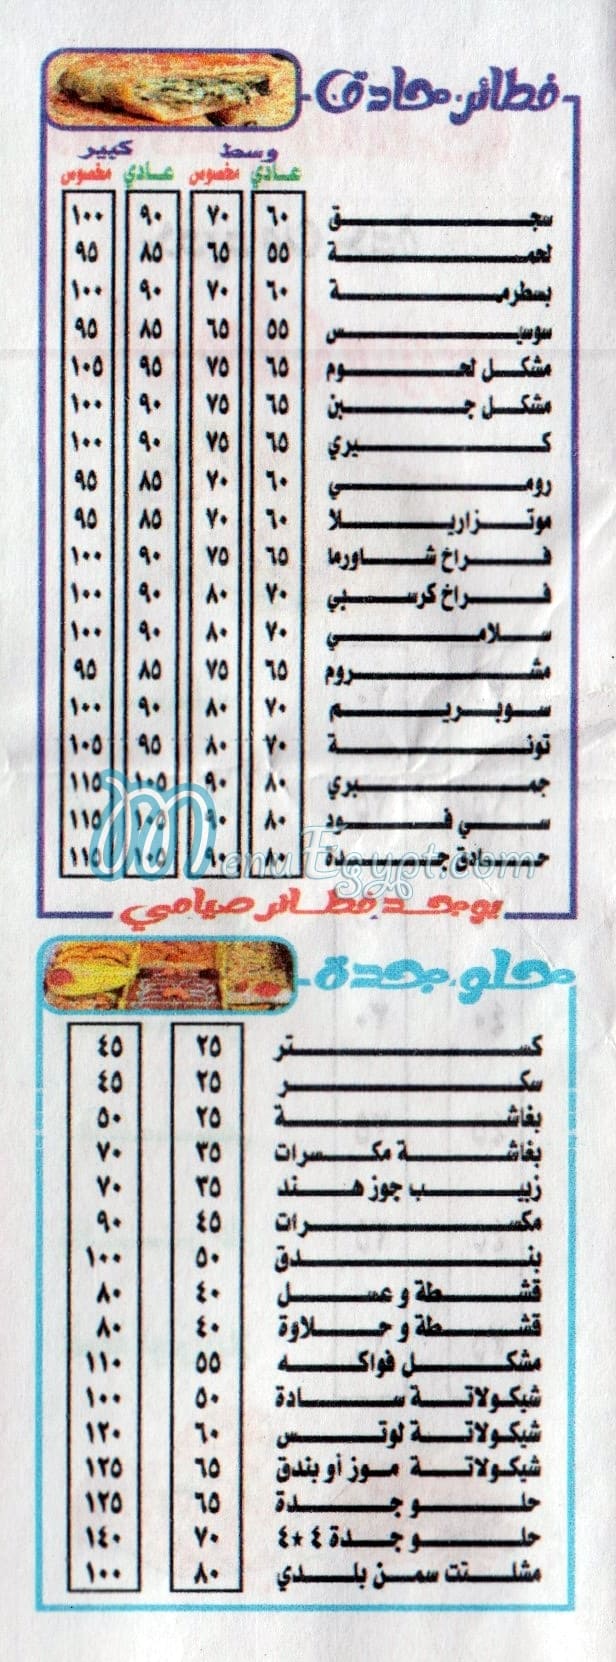 فطائر حادق
وسط كبير
عادي مخصوص عادي مخصوص
سجق ٦٠ ٧٠ ٩٠ ١٠٠
لحمة ٥٥ ٦٥ ٨٥ ٩٥
بسطرمة ٦٠ ٧٠ ٩٠ ١٠٠
سوسيس ٥٥ ٦٥ ٨٥ ٩٥
مشكل لحوم ٦٥ ٧٥ ٩٥ ١٠٥
مشكل جبن ٦٥ ٧٥ ٩٠ ١٠٠
كيري ٦٥ ٧٥ ٩٠ ١٠٠
رومي ٦٠ ٧٠ ٨٥ ٩٥
موتزاريلا ٦٠ ٧٠ ٨٥ ٩٥
فراخ شاورما ٦٥ ٧٥ ٩٠ ١٠٠
فراخ كرسبي ٧٠ ٨٠ ٩٠ ١٠٠
سلامي ٧٠ ٨٠ ٩٠ ١٠٠
مشروم ٦٥ ٧٥ ٨٥ ٩٥
سوبريم ٧٠ ٨٠ ٩٠ ١٠٠
تونة ٧٠ ٨٠ ٩٥ ١٠٥
جمبري ٨٠ ٩٠ ١٠٥ ١١٥
سي فود ٨٠ ٩٠ ١٠٥ ١١٥
حادق جدة ٨٠ ٩٠ ١٠٥ ١١٥
MenuEgypt.com
يوجد فطائر صيامي
حلو جدة
كستر ٢٥ ٤٥
سكر ٢٥ ٤٥
بغاشة ٢٥ ٥٠
بغاشة مكسرات ٣٥ ٧٠
زبيب جوز هند ٣٥ ٧٠
مكسرات ٤٥ ٩٠
بندق ٥٠ ١٠٠
قشطة و عسل ٤٠ ٨٠
قشطة و حلاوة ٤٠ ٨٠
مشكل فواكه ٥٥ ١١٠
شيكولاتة سادة ٥٠ ١٠٠
شيكولاتة لوتس ٦٠ ١٢٠
شيكولاتة موز أو بندق ٦٥ ١٢٥
حلو جدة ٦٥ ١٢٥
حلو جدة ٤*٤ ٧٠ ١٤٠
مشلتت سمن بلدي ٨٠ ١٠٠